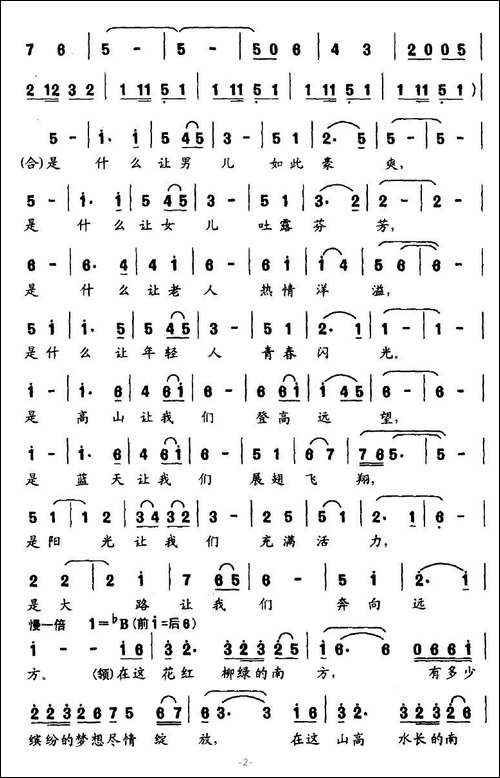 7 6 | 5 - | 5 - | 5 0 6 | 4 3 | 2 0 0 5 |
2 12 3 2 | 1 11 5 1 | 1 11 5 1 | 1 11 5 1 | 1 11 5 1 )|
5 - | i· i | 5 4 5 | 3 - | 5 1 | 2· 5 | 5 - | 5 - |
(合)是 什 么 让 男 儿 如 此 豪 爽,
5 - | i· i | 5 4 5 | 3 - | 5 1 | 3· 2 | 2 - | 2 - |
是 什 么 让 女 儿 吐 露 芬 芳,
6 - | 6· 4 | 4 i | 6 - | 6 i | i 4 | 5 6 | 6 - |
是 什 么 让 老 人 热 情 洋 溢,
5 i | i· 5 | 5 4 5 | 3 - | 5 5 | 2· i | 1 - | 1 - |
是 什 么 让 年 轻 人 青 春 闪 光。
i - | i· 6 | 4 6 i | 6 - | 6 6 i | i 4 5 | 6 - | 6 - |
是 高 山 让 我 们 登 高 远 望,
i - | i· 6 | 4 6 i | 6 - | 5 1 | 6 7 | 7 6 5· | 5 - |
是 蓝 天 让 我 们 展 翅 飞 翔,
5 1 | 1 2 | 3 4 3 2 | 3 - | 2 5 | 5 1 | 2· 1 | 6 - |
是 阳 光 让 我 们 充 满 活 力,
2 2 | 2 i | 7 6 5 | 6 - | 5 i | 2· i |
是 大 路 让 我 们 奔 向 远
慢一倍 1=♭B(前i=后6)
i - | - i 6 | 3· 3 2 | 3 2 3 2 5 | i 6· 6· | 0 6 6 1 |
方。 (领)在 这 花 红 柳 绿 的 南 方, 有 多 少
2 2 3 2 6 7 5 | 6 6 7 | 6 3· 3 | 5 0 i 6 | 3· 3 2 | 3 2 3 2 6 |
缤 纷 的 梦 想 尽 情 绽 放, 在 这 山 高 水 长 的 南
-2-